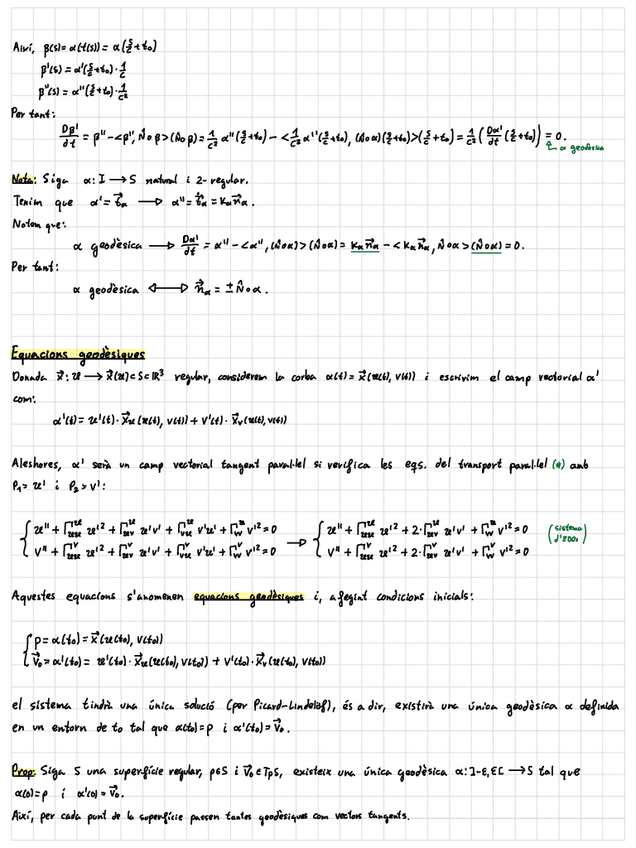 Així, β(s) = α(t(s)) = α(s/c + t₀)
β'(s) = α'(s/c + t₀)·1/c
β''(s) = α''(s/c + t₀)·1/c²
Per tant:
Dβ'/dt = β'' - <β'', N̂∘β>(N̂∘β) = 1/c² α''(s/c + t₀) - <1/c² α''(s/c + t₀), (N̂∘α)(s/c + t₀)>(s/c + t₀) = 1/c² (Dα'/dt (s/c + t₀)) = 0.
α geodèsica
Nota: Siga α: I → S natural i 2-regular.
Tenim que α' = t⃗α → α'' = ṫ⃗α = kα n⃗α.
Notem que:
α geodèsica → Dα'/dt = α'' - <α'', (N̂∘α)>(N̂∘α) = kα n⃗α - <kα n⃗α, N̂∘α>(N̂∘α) = 0.
Per tant:
α geodèsica ↔ n⃗α = ± N̂∘α.
Equacions geodèsiques
Donada x⃗: U → x⃗(U) ⊂ S ⊂ ℝ³ regular, considerem la corba α(t) = x⃗(u(t), v(t)) i escrivim el camp vectorial α'
com:
α'(t) = u'(t)·x⃗u(u(t), v(t)) + v'(t)·x⃗v(u(t), v(t))
Aleshores, α' serà un camp vectorial tangent paral·lel si verifica les eqs. del transport paral·lel (*) amb
P₁ = u' i P₂ = v':
{ u'' + Γᵘuu u'² + Γᵘuv u'v' + Γᵘvu v'u' + Γᵘvv v'² = 0 → { u'' + Γᵘuu u'² + 2·Γᵘuv u'v' + Γᵘvv v'² = 0 (sistema
{ v'' + Γᵛuu u'² + Γᵛuv u'v' + Γᵛvu v'u' + Γᵛvv v'² = 0 { v'' + Γᵛuu u'² + 2·Γᵛuv u'v' + Γᵛvv v'² = 0 d'EDOs)
Aquestes equacions s'anomenen equacions geodèsiques i, afegint condicions inicials:
{ p = α(t₀) = x⃗(u(t₀), v(t₀))
{ v⃗₀ = α'(t₀) = u'(t₀)·x⃗u(u(t₀), v(t₀)) + v'(t₀)·x⃗v(u(t₀), v(t₀))
el sistema tindrà una única solució (per Picard-Lindelöf), és a dir, existirà una única geodèsica α definida
en un entorn de t₀ tal que α(t₀) = p i α'(t₀) = v⃗₀.
Prop: Siga S una superfície regular, p∈S i v⃗₀ ∈ TpS, existeix una única geodèsica α: ]-ε, ε[ → S tal que
α(0) = p i α'(0) = v⃗₀.
Així, per cada punt de la superfície passen tantes geodèsiques com vectors tangents.